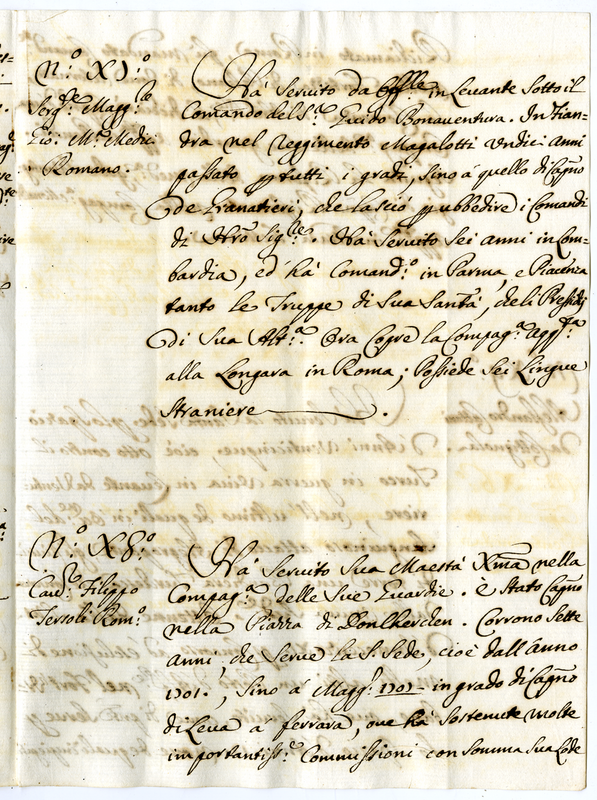 N.º XI.º
Serg.te Magg.re
Gio: M.ª Medici
Romano.
Hà Seruito da in Leuante sotto il
Comando del S.r Guido Bonauentura. In Fian-
dra nel reggimento Magalotti Vndici anni
passato p tutti i gradi, sino à quello di Capño
de Granatieri, che lasciò p ubbedire i Comandi
di Hà Seruito sei anni in Lom-
bardia, ed hà Comand.º in Parma, e Piacenza
tanto le Truppe di Sua Santà, che li Presidij
di Sua Alt.ª Ora Copre la Compag.ª Agg.ta
alla Longara in Roma; Possiede sei Lingue
straniere.
N.º X8.º
Cau.r Filippo
Tersoli Rom.º
Hà Seruito Sua Maestà Xma nella
Compag.ª delle Sue Guardie. è stato Capño
nella Piazza di Corrono Sette
Anni, che Serue la S. Sede, cioè dall'anno
1701., sino à Magg.º in grado di Capño
di Leua à ferrara, oue hà sostenute molte
importantiss.e Commissioni con somma sua Lode